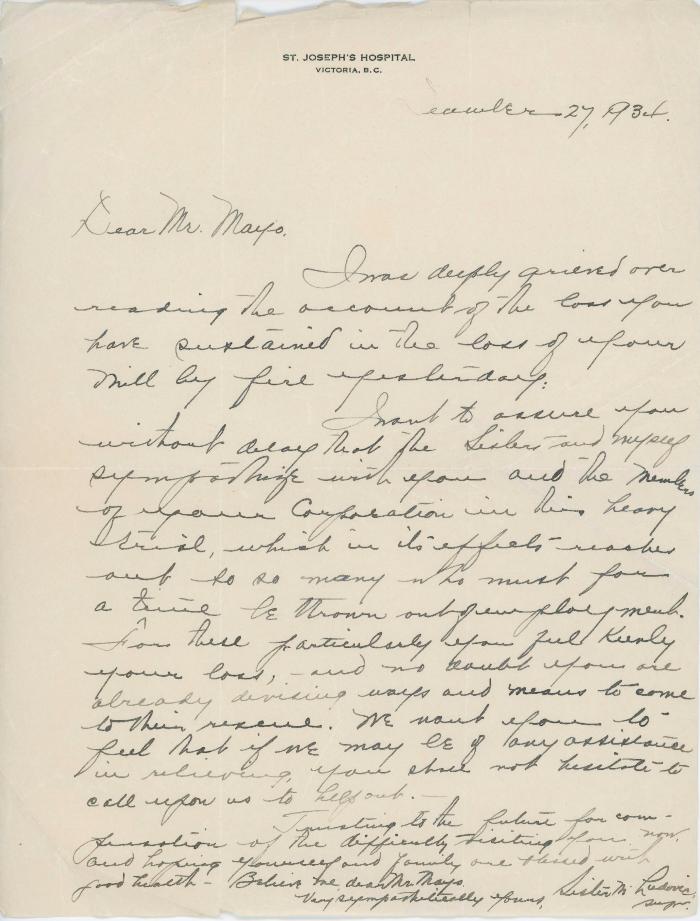 ST. JOSEPH'S HOSPITAL
VICTORIA, B.C.
27, 193
Dear Mr. Mayo.
I was deeply grieved over
reading the account of the loss you
have sustained in the loss of your
mill by fire yesterday.
I want to assure you
without delay that the Sisters and myself
sympathize with you and the members
of your Corporation in this heavy
trial, which in its effects reaches
out to so many who must for
a time be thrown out of employment.
For these particularly you feel keenly
your loss, - and no doubt you are
already devising ways and means to come
to their rescue. We want you to
feel that if we may be of any assistance
in relieving, you shall not hesitate to
call upon us to help out. —
Trusting to the future for com-
pensation of the difficulty visiting you now.
and hoping yourself and family are blessed with
good health - Believe me, dear Mr. Mayo,
Very sympathetically yours,
Sister M. Ludovic
supr.